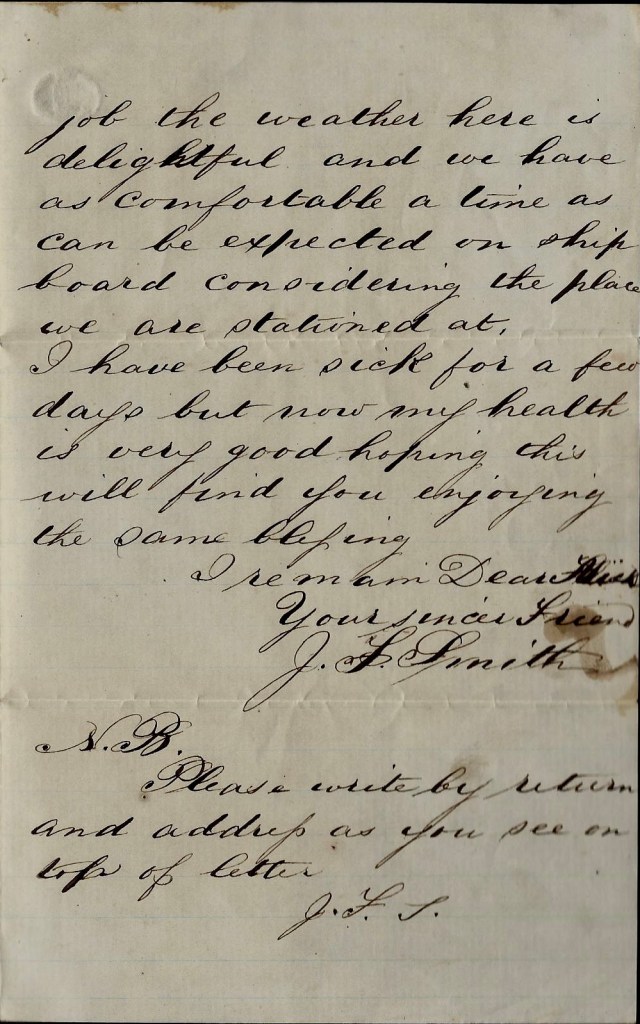 job the weather here is
delightful and we have
as comfortable a time as
can be expected on ship
board considering the place
we are stationed at.
I have been sick for a few
days but now my health
is very good hoping this
will find you enjoying
the same blessing
I remain Dear
Your sincer Friend
J. F. Smith
N.B.
Please write by return
and address as you see on
top of letter
J. F. S.